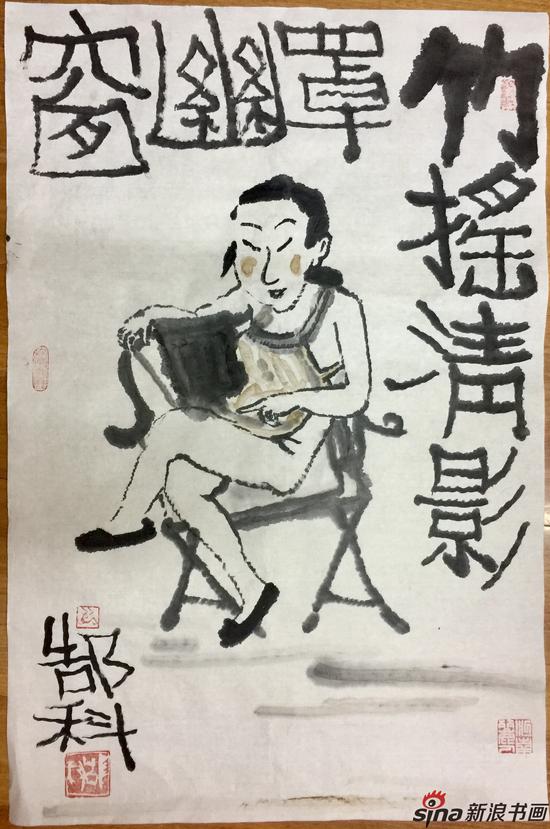 竹摇清影
罩幽窗
郜科
sina新浪书画